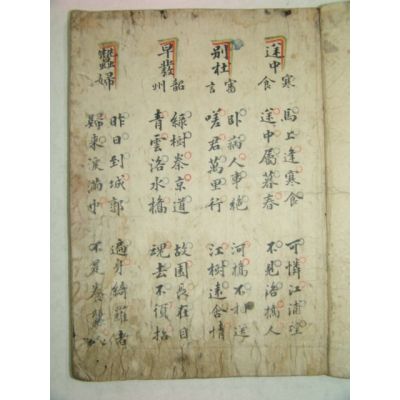 途中寒食
馬上逢寒食 可憐江浦望
途中屬暮春 不見洛橋人
別杜審言
卧病人事絶 河橋不相送
嗟君萬里行 江樹遠含情
早發韶州
綠樹秦京道 故園長在目
青雲洛水橋 魂去不須招
蠶婦
昨日到城郭 遍身綺羅者
歸來淚滿巾 不是養蠶